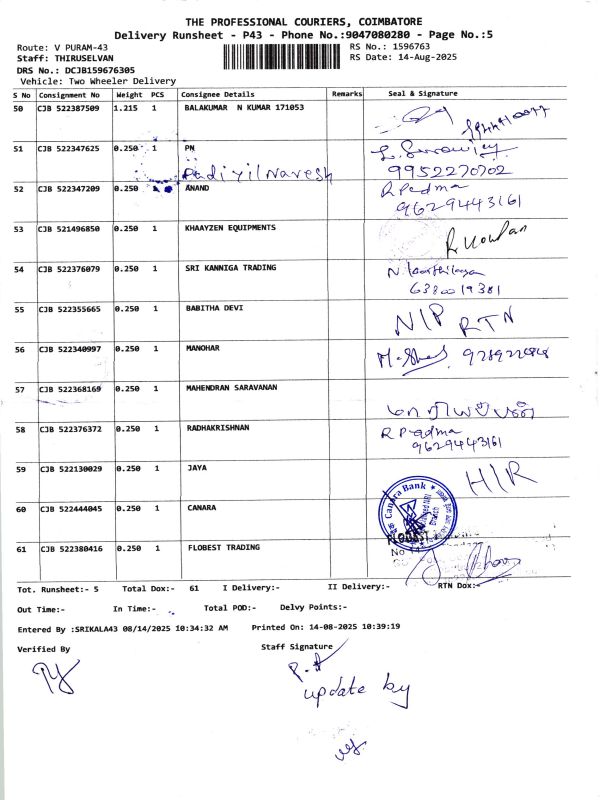 THE PROFESSIONAL COURIERS, COIMBATORE
Delivery Runsheet - P43 - Phone No.:9047080280 - Page No.:5
Route: V PURAM-43
RS No.: 1596763
Staff: THIRUSELVAN
RS Date: 14-Aug-2025
DRS No.: DCJB159676305
Vehicle: Two Wheeler Delivery
S No Consignment No Weight PCS Consignee Details Remarks Seal & Signature
50 CJB 522387509 1.215 1 BALAKUMAR N KUMAR 171053
51 CJB 522347625 0.250 1 PN
9952270702
Padiyil Navesh
52 CJB 522347209 0.250 1 ANAND R Padma
9629443161
53 CJB 521496850 0.250 1 KHAAYZEN EQUIPMENTS
54 CJB 522376079 0.250 1 SRI KANNIGA TRADING
6380019381
55 CJB 522355665 0.250 1 BABITHA DEVI N/P RTN
56 CJB 522340997 0.250 1 MANOHAR
57 CJB 522368169 0.250 1 MAHENDRAN SARAVANAN
58 CJB 522376372 0.250 1 RADHAKRISHNAN R Padma
9629443161
59 CJB 522130029 0.250 1 JAYA H/R
60 CJB 522444045 0.250 1 CANARA
Canara Bank
61 CJB 522380416 0.250 1 FLOBEST TRADING
Tot. Runsheet:- 5 Total Dox:- 61 I Delivery:- II Delivery:- RTN Dox:-
Out Time:- In Time:- Total POD:- Delvy Points:-
Entered By :SRIKALA43 08/14/2025 10:34:32 AM Printed On: 14-08-2025 10:39:19
Verified By Staff Signature
update by